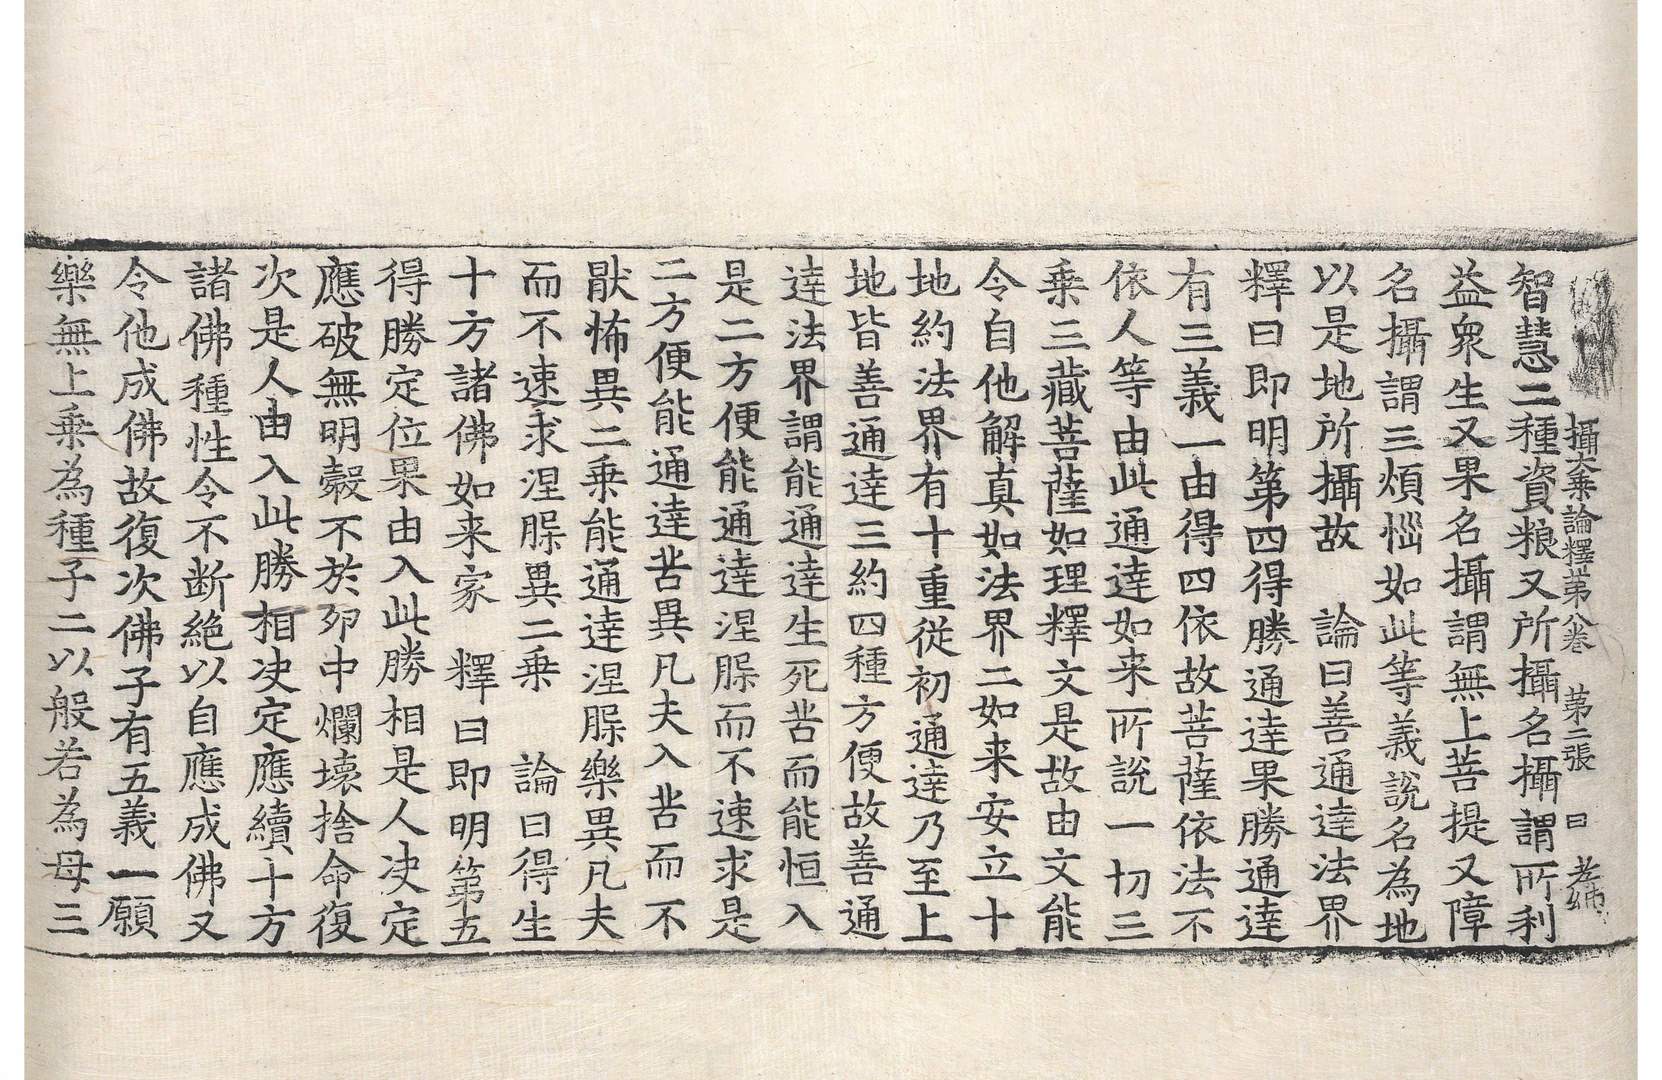 攝大乗論釋第八卷 第二張 曰
智慧二種資粮又所攝名攝謂所利
益衆生又果名攝謂無上菩提又障
名攝謂三煩惱如此等義說名為地
以是地所攝故 論曰善通達法界
釋曰即明第四得勝通達果勝通達
有三義一由得四依故菩薩依法不
依人等由此通達如来所說一切三
乗三藏菩薩如理釋文是故由文能
令自他解真如法界二如来安立十
地約法界有十重從初通達乃至上
地皆善通達三約四種方便故善通
達法界謂能通達生死苦而能恒入
是二方便能通達涅槃而不速求是
二方便能通達苦異凡夫入苦而不
猒怖異二乗能通達涅槃樂異凡夫
而不速求涅槃異二乗 論曰得生
十方諸佛如来家 釋曰即明第五
得勝定位果由入此勝相是人决定
應破無明㲉不於卵中爛壊捨命復
次是人由入此勝相决定應續十方
諸佛種性令不断絶以自應成佛又
令他成佛故復次佛子有五義一願
樂無上乗為種子二以般若為母三